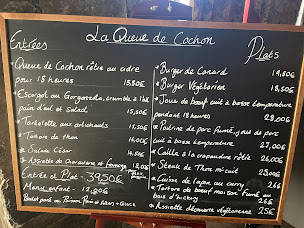 La Queue de Cochon
Entrées
Queue de Cochon rôtie au cidre
pour 18 heures 15,80€
Escargot au Gorgonzola, crumble à l'ail
pain d'ail et salad 15,50€
Tartelette aux artichauts 11,50€
Tartare de thon 16,00€
Salade César 14,50€
Assiette de Charcuterie et Fromage
Entrée et Plat - 39,50€
Menu enfant - 12,80€
Plats
Burger de Canard 19,80€
Burger Végétarien 18,50€
Joue de bœuf cuit à basse température
pendant 18 heures 29,00€
Poitrine de porc fumé, jus de porc
cuit à basse température 27,00€
Caille à la crapaudine rôtie 26,00€
Steak de Thon mi cuit 23,00€
Cuisse de lapin au curry 26€
Tartare de bœuf maison fumé au
bois d'hickory 26€
Assiette découverte végétarienne 25€